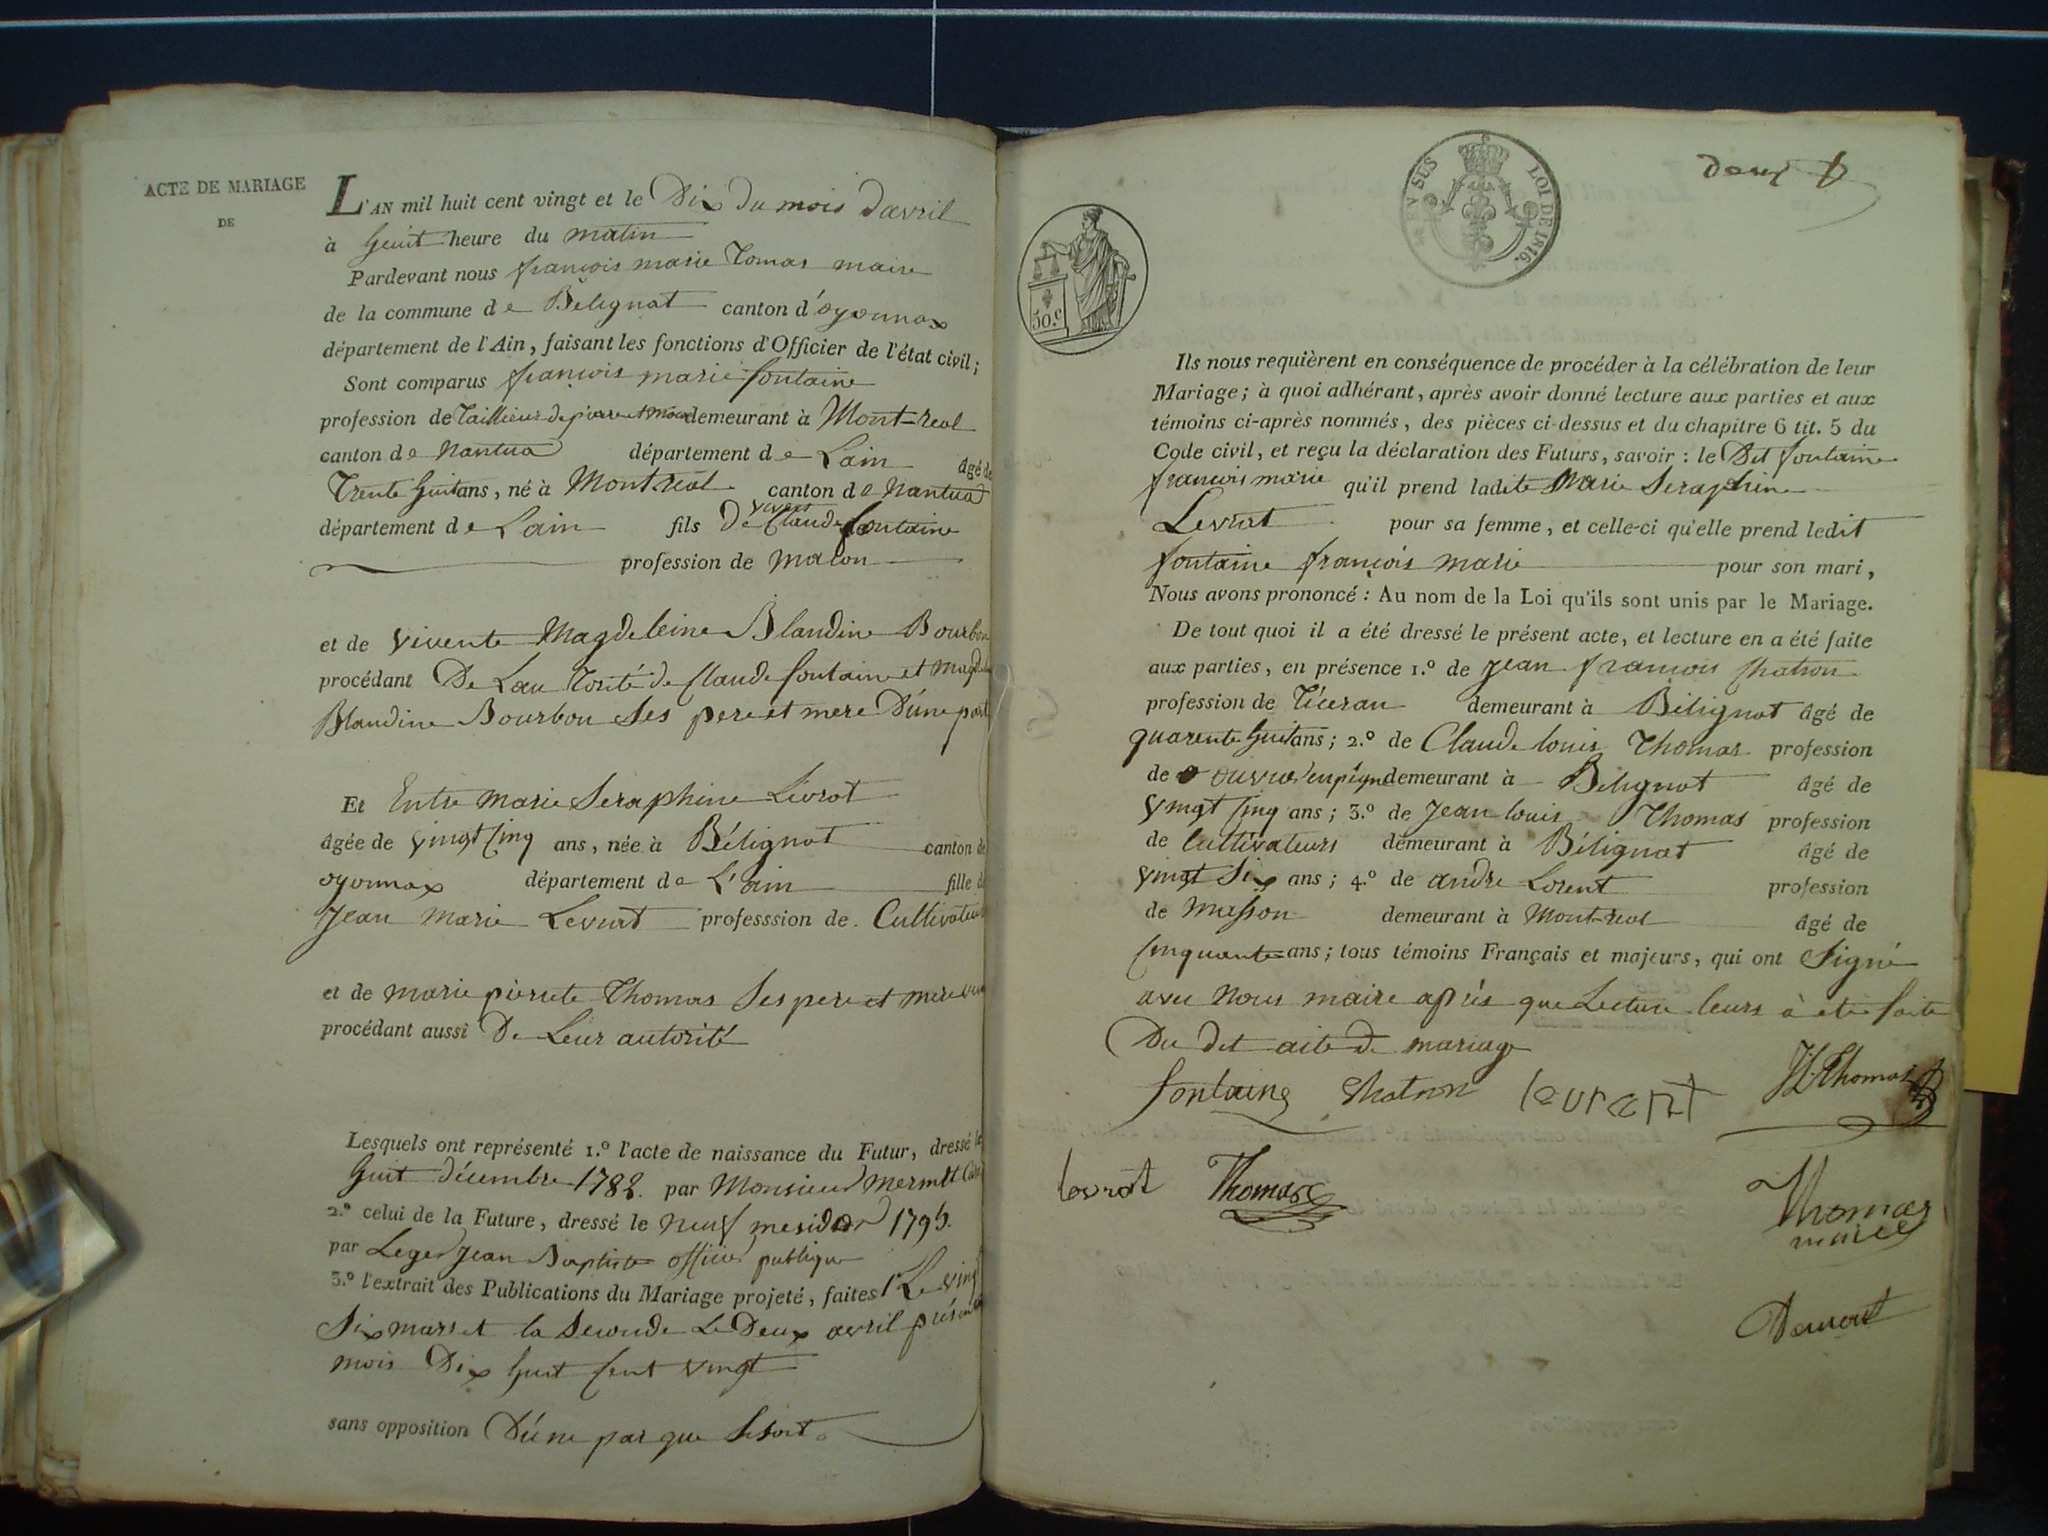 ACTE DE MARIAGE
DE
L'AN mil huit cent vingt et le Dix du mois davril
à huit heure du matin
Pardevant nous françois marie Tomas maire
de la commune de Bélignat canton d'oyonnax
département de l'Ain, faisant les fonctions d'Officier de l'état civil;
Sont comparus françois marie fontaine
profession de Taillieur de pierre et demeurant à Mont-real
canton de Nantua département de Lain âgé de
Trente huit ans, né à Montreal canton de Nantua
vivent
département de Lain fils De Claude fontaine
profession de Macon
et de vivente Magdeleine Blandine Bourbon
procédant De Lau Torité de Claude fontaine et Magdeleine
Blandine Bourbon Ses pere et mere D'une part
Et Entre Marie Seraphine Levrat
âgée de vingt Cinq ans, née à Bélignat canton de
oyonnax département de L'ain fille de
Jean Marie Levrat professsion de Cultivateur
et de marie pierrete Thomas Ses pere et mere
procédant aussi De Leur autorité
Lesquels ont représenté 1.º l'acte de naissance du Futur, dressé le
huit décembre 1788. par Monsieur Mermet
2.º celui de la Future, dressé le neuf mesidor 1795.
par Leger Jean Baptiste officier publique
3.º l'extrait des Publications du Mariage projeté, faites 1º Le vingt
Six mars et la Seconde Le Deux avril présent
mois Dix huit Cent vingt
sans opposition D'une par que Se soit.
deux
SUS
LOI DE 1816.
50.c
Ils nous requièrent en conséquence de procéder à la célébration de leur
Mariage; à quoi adhérant, après avoir donné lecture aux parties et aux
témoins ci-après nommés, des pièces ci-dessus et du chapitre 6 tit. 5 du
Code civil, et reçu la déclaration des Futurs, savoir: le Dit fontaine
francois marie qu'il prend ladite Marie Seraphine
Levrat pour sa femme, et celle-ci qu'elle prend ledit
fontaine françois marie pour son mari,
Nous avons prononcé: Au nom de la Loi qu'ils sont unis par le Mariage.
De tout quoi il a été dressé le présent acte, et lecture en a été faite
aux parties, en présence 1.º de Jean françois Chatron
profession de Ticeran demeurant à Bélignat âgé de
quarente huit ans; 2.º de Claude louis Thomas profession
de demeurant à Belignat âgé de
vingt Cinq ans; 3.º de Jean louis Thomas profession
de Cultivateurs demeurant à Bélignat âgé de
vingt Six ans; 4.º de andre Lorent profession
de Masson demeurant à Mont-real âgé de
Cinquante ans; tous témoins Français et majeurs, qui ont Signé
avec Nous maire aprés que Lecture leurs à eté faite
Du dit acte De mariage
fontaine Chatron lavrant JLThomas
levrat Thomas Thomas
maire